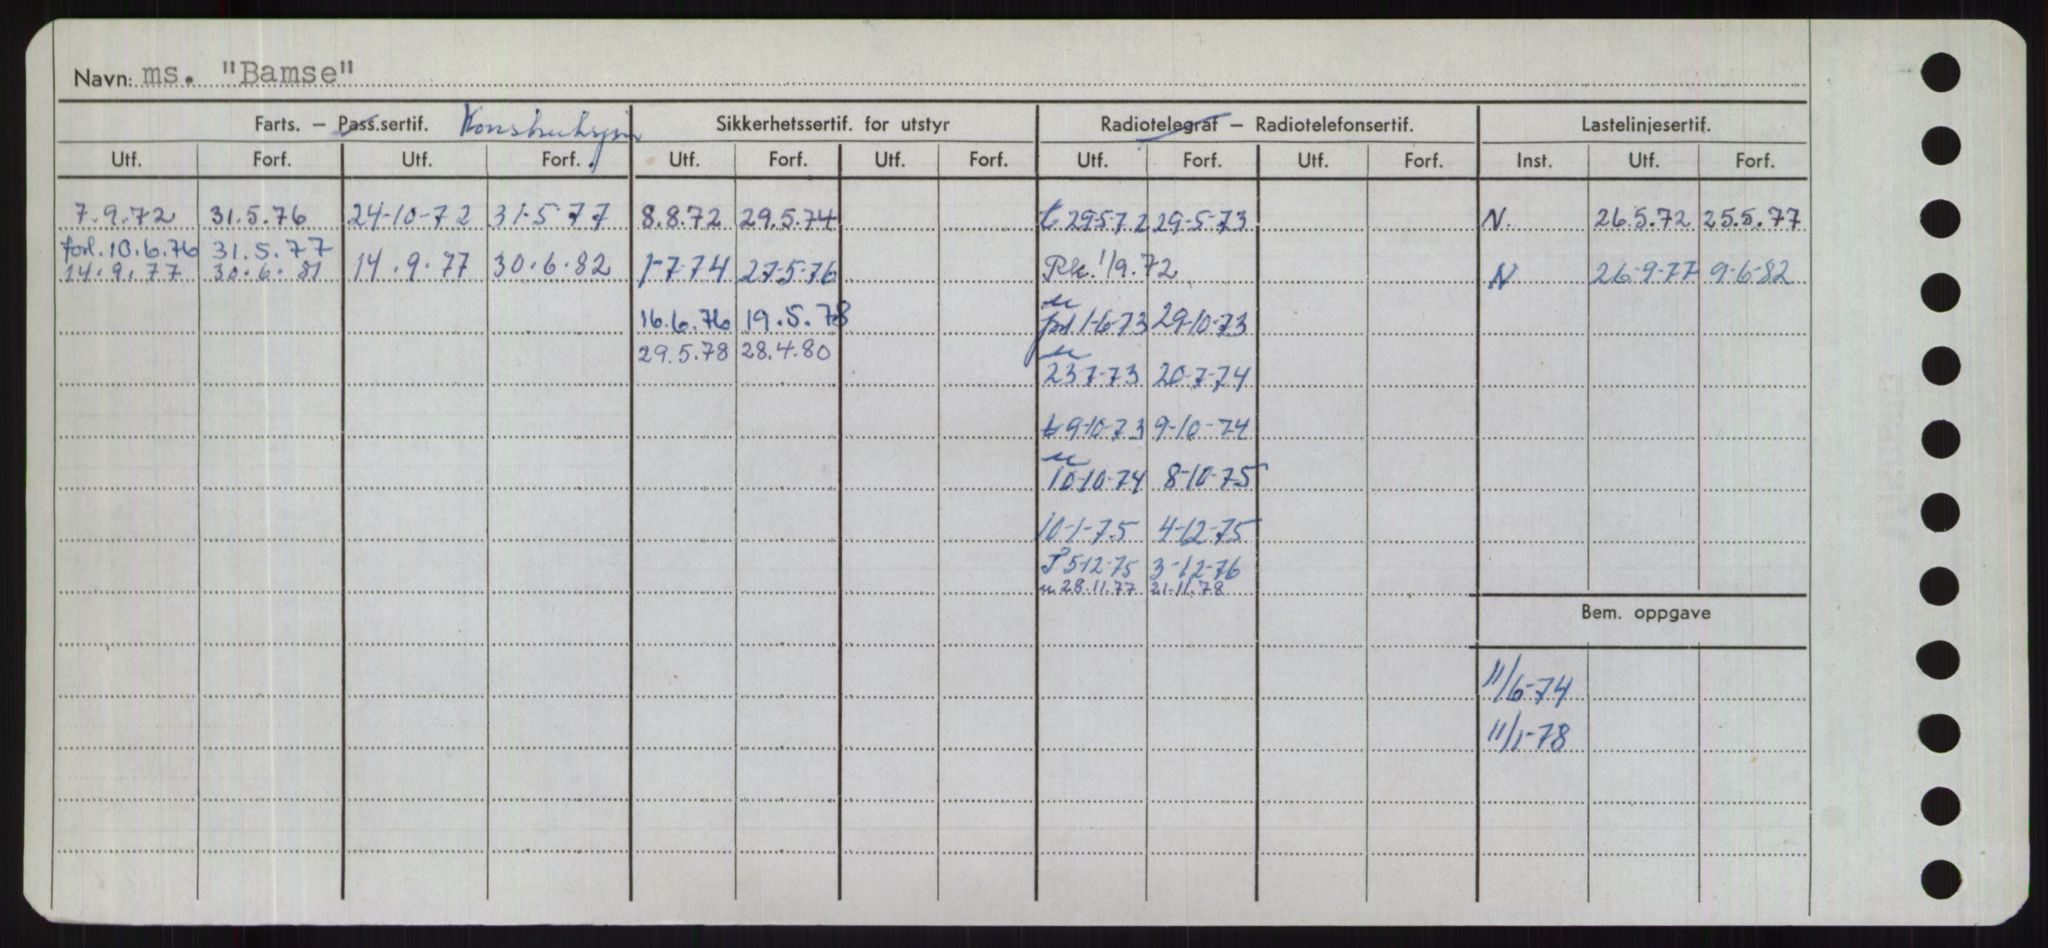 Navn: ms. "Bamse"
Farts. – Pass.sertif. Konstruksjon Sikkerhetssertif. for utstyr Radiotelegraf – Radiotelefonsertif. Lastelinjesertif.
Utf. Forf. Utf. Forf. Utf. Forf. Utf. Forf. Utf. Forf. Utf. Forf. Inst. Utf. Forf.
7.9.72 31.5.76 24-10-72 31-5-77 8.8.72 29.5.74 t 29-5-72 29-5-73 N. 26.5.72 25.5.77
forl. 10.6.76 31.5.77
14.9.77 30.6.81 14.9.77 30.6.82 1-7-74 27-5-76 Rk. 1/9.72 N 26-9-77 9-6-82
16.6.76 19.5.78 u forl 1-6-73 29-10-73
29.5.78 28.4.80 u 23-7-73 20-7-74
t 9-10-73 9-10-74
u 10-10-74 8-10-75
10-1-75 4-12-75
5-12-75 3-12-76
u 28.11.77 21.11.78
Bem. oppgave
11/6-74
11/1-78